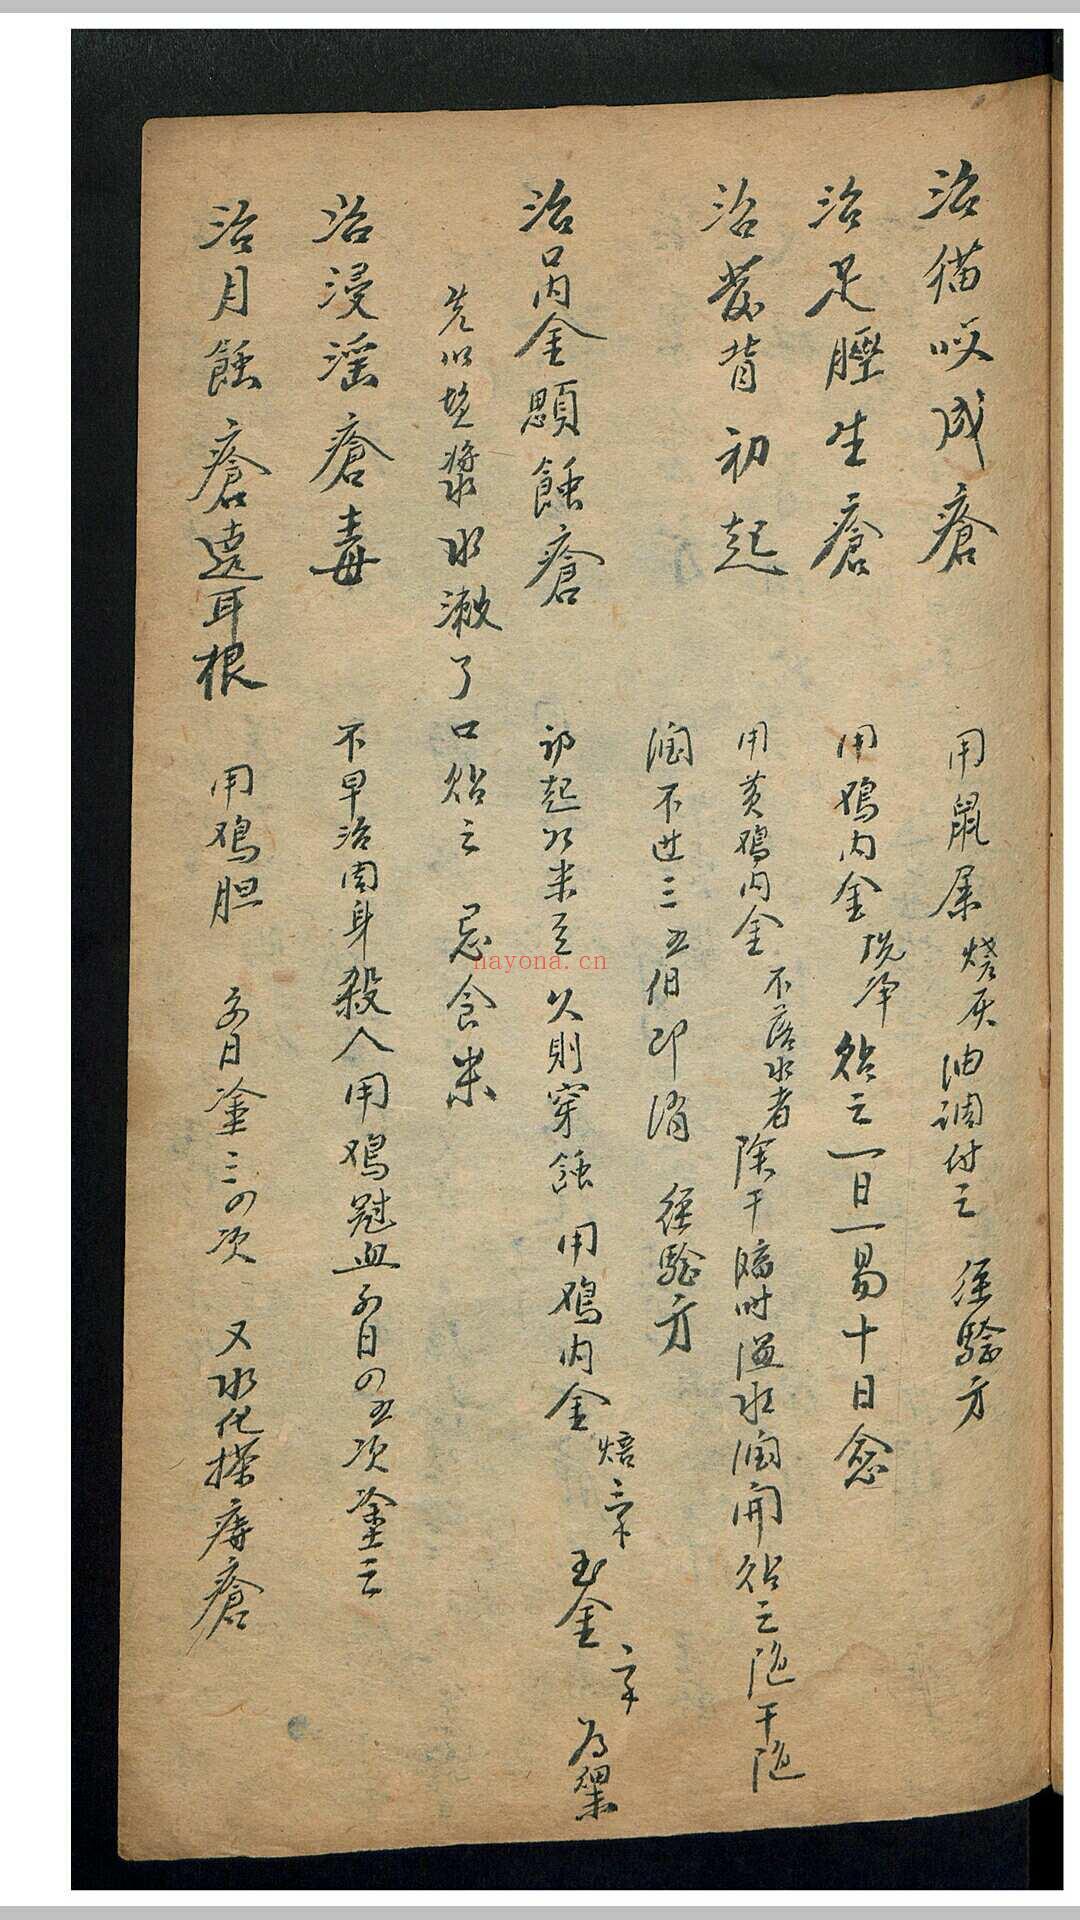 治猫咬成瘡 用鼠屎燒灰油調付之 經驗方
治足脛生瘡 用鳮内金洗净貼之一日一易十日愈
治發背初起 用黃鳮内金不落水者除干臨時溫水潤開貼之随干随
潤不过三五個即消 經驗方
治口内金顋蝕瘡 初起如米豆久則穿蝕 用鳮内金焙 三錢 玉金 一錢 為細末
先以塩漿水漱了口貼之 忌食米
治浸淫瘡毒 不早治周身殺人用鳮冠血每日四五次塗之
治月蝕瘡遶耳根 用鳮胆 每日塗三四次 又水化搽痔瘡
nayona.cn